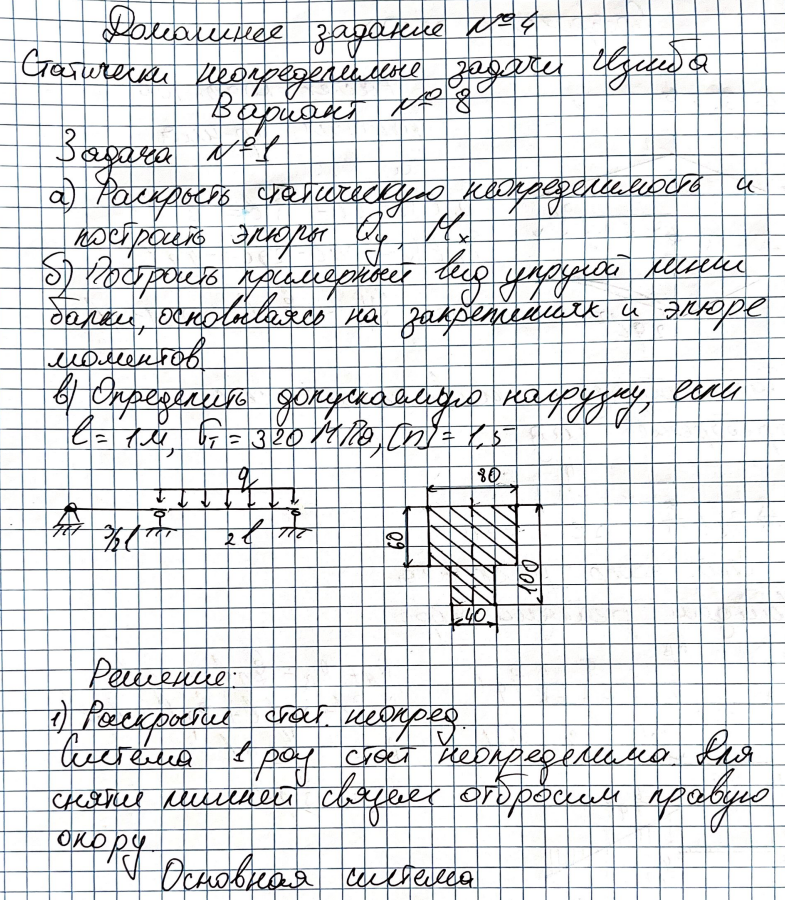 Домашнее задание №4
Статически неопределимые задачи Изгиба
Вариант №8
Задача №1
а) Раскрыть статическую неопределимость и
построить эпюры Qy, Mx
б) Построить примерный вид упругой линии
балки, основываясь на закреплениях и эпюре
моментов.
в) Определить допускаемую нагрузку, если
l = 1м, σт = 320 МПа, [n] = 1,5
q
3/2 l
2l
80
60
100
40
Решение:
1) Раскрытие стат. неопред.
Система 1 раз стат неопределима. Для
снятие лишней связем отбросим правую
опору.
Основная система